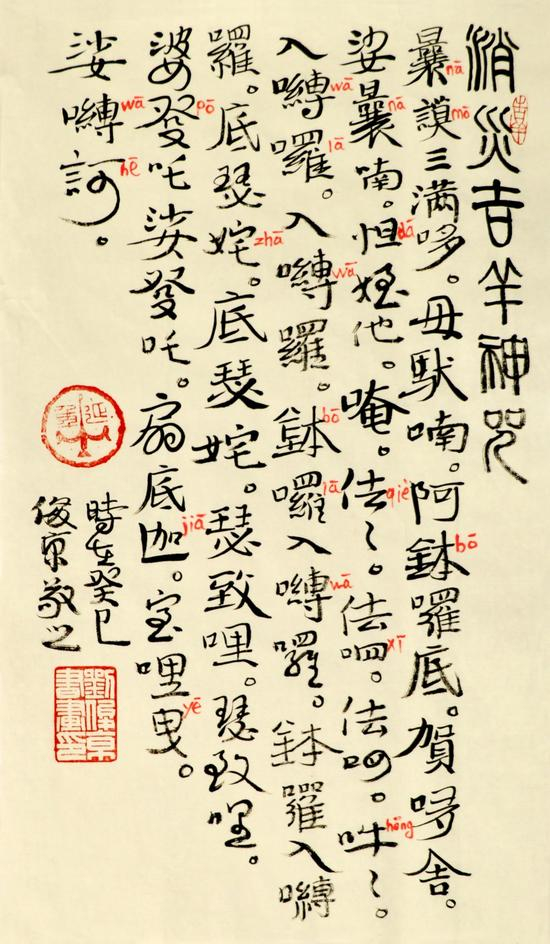 消災吉羊神咒
曩nā謨mō三满哆。母馱喃。阿鉢bō囉底。賀㗌舍。
娑曩nā喃。怛dá姪他。唵。佉qiè〻。佉呬xī。佉呵。吽hōng〻。
入嚩wā囉lā。入嚩wā囉。鉢bō囉lā入嚩wā囉。鉢囉入嚩
囉。底瑟姹zhā。底瑟姹。瑟致哩。瑟致哩。
婆發pō吒娑發吒。扇底迦jiā。室哩曳yē。
娑嚩wā訶hē。
時在癸巳
俊京敬之
劉俊京
書畫印